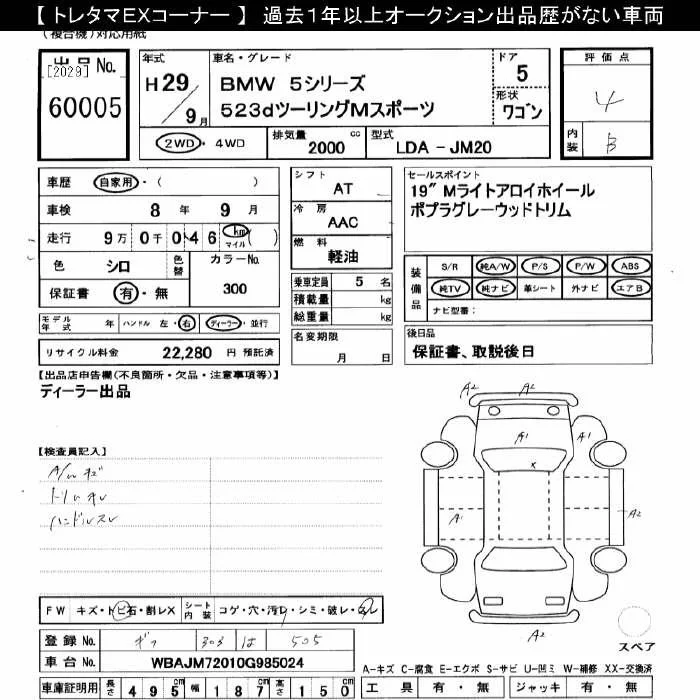 【 トレタマEXコーナー 】 過去1年以上オークション出品歴がない車両
(複合機)対応用紙
出品 No.
[2029]
60005
年式
H29/9月
車名・グレード
BMW 5シリーズ
523dツーリングMスポーツ
ドア
5
形状
ワゴン
2WD・4WD
排気量
2000 cc
型式
LDA - JM20
評価点
4
内装
B
車歴 自家用・( )
車検 8年 9月
走行 9万0千046 km マイル ( )
色 シロ
色替
カラーNo.
300
保証書 有・無
モデル年式 年 ハンドル 左・右 ディーラー・並行
リサイクル料金 22,280 円 預託済
シフト
AT
冷房
AAC
燃料
軽油
乗車定員 5 名
積載量 kg
総重量 kg
名変期限
月 日
セールスポイント
19" Mライトアロイホイール
ポプラグレーウッドトリム
装備品
S/R 純A/W P/S P/W ABS
純TV 純ナビ 革シート 外ナビ エアB
ナビ型番:
後日品
保証書、取説後日
【出品店申告欄(不良箇所・欠品・注意事項等)】
ディーラー出品
【検査員記入】
A/W キズ
トリムキレ
ハンドルスレ
A2 A2
A1 A1
X
A1 A2
A2
スペア
FW キズ・トビ石・割レX
シート内装 コゲ・穴・汚レ・シミ・破レ・スレ
登録No. ギフ 303 は 505
車台No. WBAJM72010G985024
A-キズ C-腐食 E-エクボ S-サビ U-凹ミ W-補修 XX-交換済
車庫証明用 長さ 495cm 幅 187cm 高さ 150cm
工具 有・無 ジャッキ 有・無